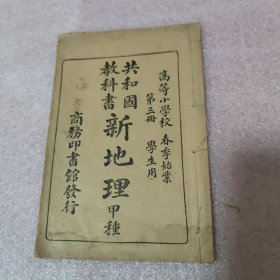 高等小學校 春季始業
第三冊 學生用
共和國
教科書
新地理 甲種
商務印書館發行